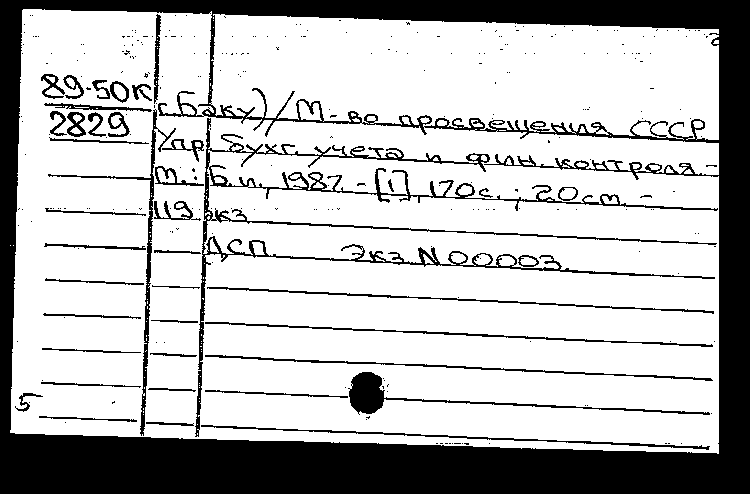 89-50к
2829
г. Баку) / М-во просвещения СССР.
Упр. бухг. учета и фин. контроля. -
М.: Б.и., 1987. - [1], 170 с. ; 20 см. -
119 экз.
ДСП. Экз N 00003.
5